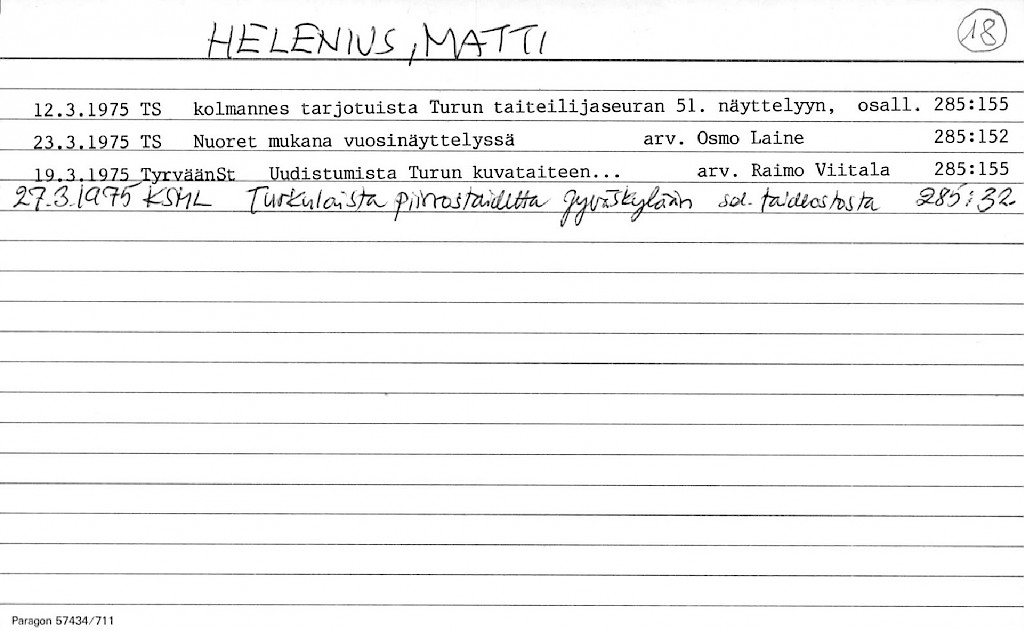 HELENIUS, MATTI 18
12.3.1975 TS kolmannes tarjotuista Turun taiteilijaseuran 51. näyttelyyn, osall. 285:155
23.3.1975 TS Nuoret mukana vuosinäyttelyssä arv. Osmo Laine 285:152
19.3.1975 TyrväänSt Uudistumista Turun kuvataiteen... arv. Raimo Viitala 285:155
27.3.1975 KSML Turkulaista piirrostaidetta Jyväskylään taideostosta 285:32
Paragon 57434/711